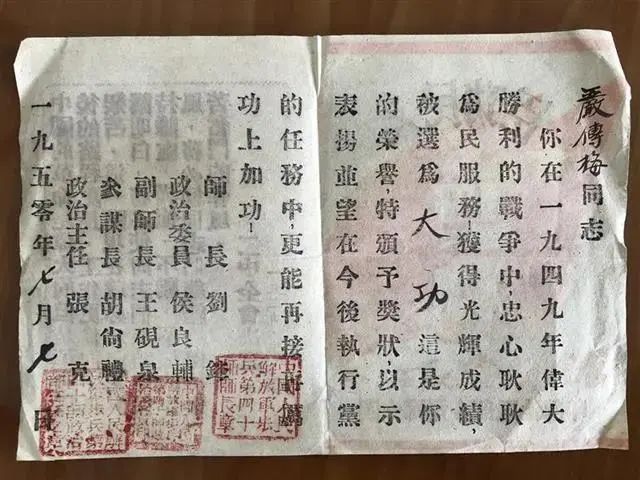 嚴傳梅同志
你在一九四九年偉大
勝利的戰爭中，忠心耿耿
為民服務！獲得光輝成績，
被選為大功這是你
的榮譽，特頒予獎狀，以示
表揚並望在今後執行黨
的任務中，更能再接再厲
功上加功！
師長劉
政治委員侯良輔
副師長王硯泉
參謀長胡尚禮
政治主任張克
一九五零年七月七日
解放軍步
兵第四十
師師長章